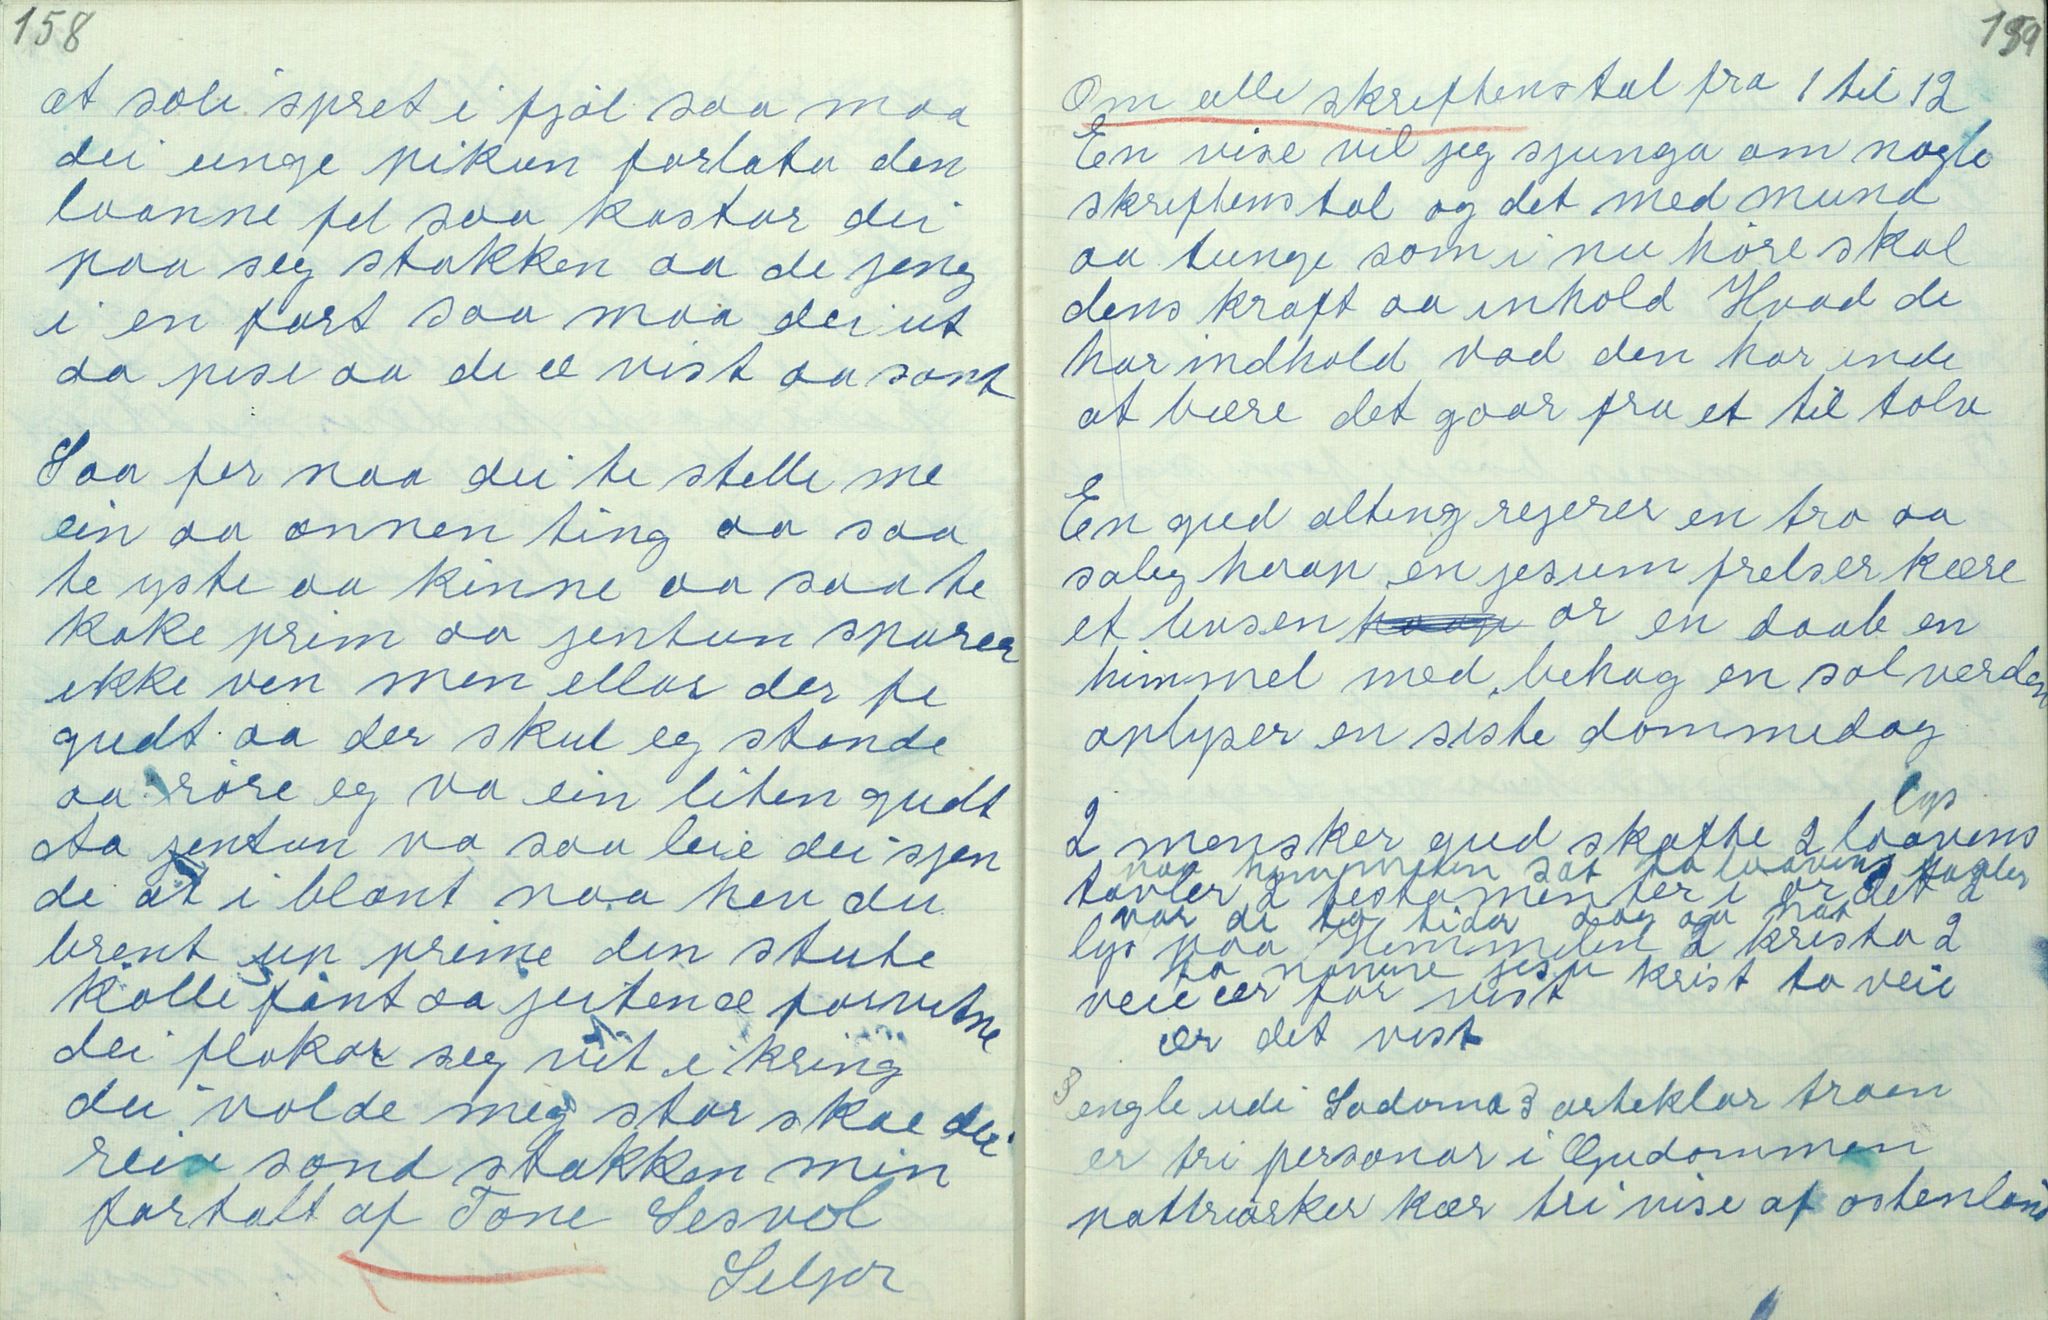 158
at soli spret i fjöl saa maa
dei unge pikun forlata den
loanne fel saa kastar dei
paa seg stakken aa de jeng
i en fart saa maa dei ut
aa pise aa de æ vist aa sant
Saa fer naa dei te stelle me
ein aa annen ting aa saa
te yste aa kinne aa saa te
koke prim aa jentun sparer
ikke ven men ellar der fe
gudt aa der skul eg stande
aa röre eg va ein liten gudt
Aa jentun va saa leie dei sjen
de at i blant naa hen du
brent up prime den stute
kolle fant aa jeiten æ forvitne
dei flokar seg vit i kring
dei volde meg stor skae dei
reiv sond stakken min
fortalt af Tone Sesvol
Seljor
159
Om alle skriftens tal fra 1 til 12
En vise vil jeg sjunga om nogle
skriftens tal og det med mund
aa tunge som i nu höre skal
dens kraft aa inhold Hvad de
har indhold vad den har inde
at bære det gaar fra et til tolv
En gud alting rejerer en tro aa
salig haap en jesum frelser kære
et livsen or en daab en
himmel med behag en sol verden
oplyser en siste dommedag
lys
2 mensker gud skafte 2 laavens
naa himmelen sat to laavens tavler
tavler 2 testamenter i ordet 2
var de to tider dag aa nat
lys paa Himmelen 2 krista 2
to namne jesu krist to veie
veie er for vist
er det vist
3 engle udi Sodoma 3 arteklar troen
er tri personar i Gudommen
pattriarker kær tri vise af ostenland